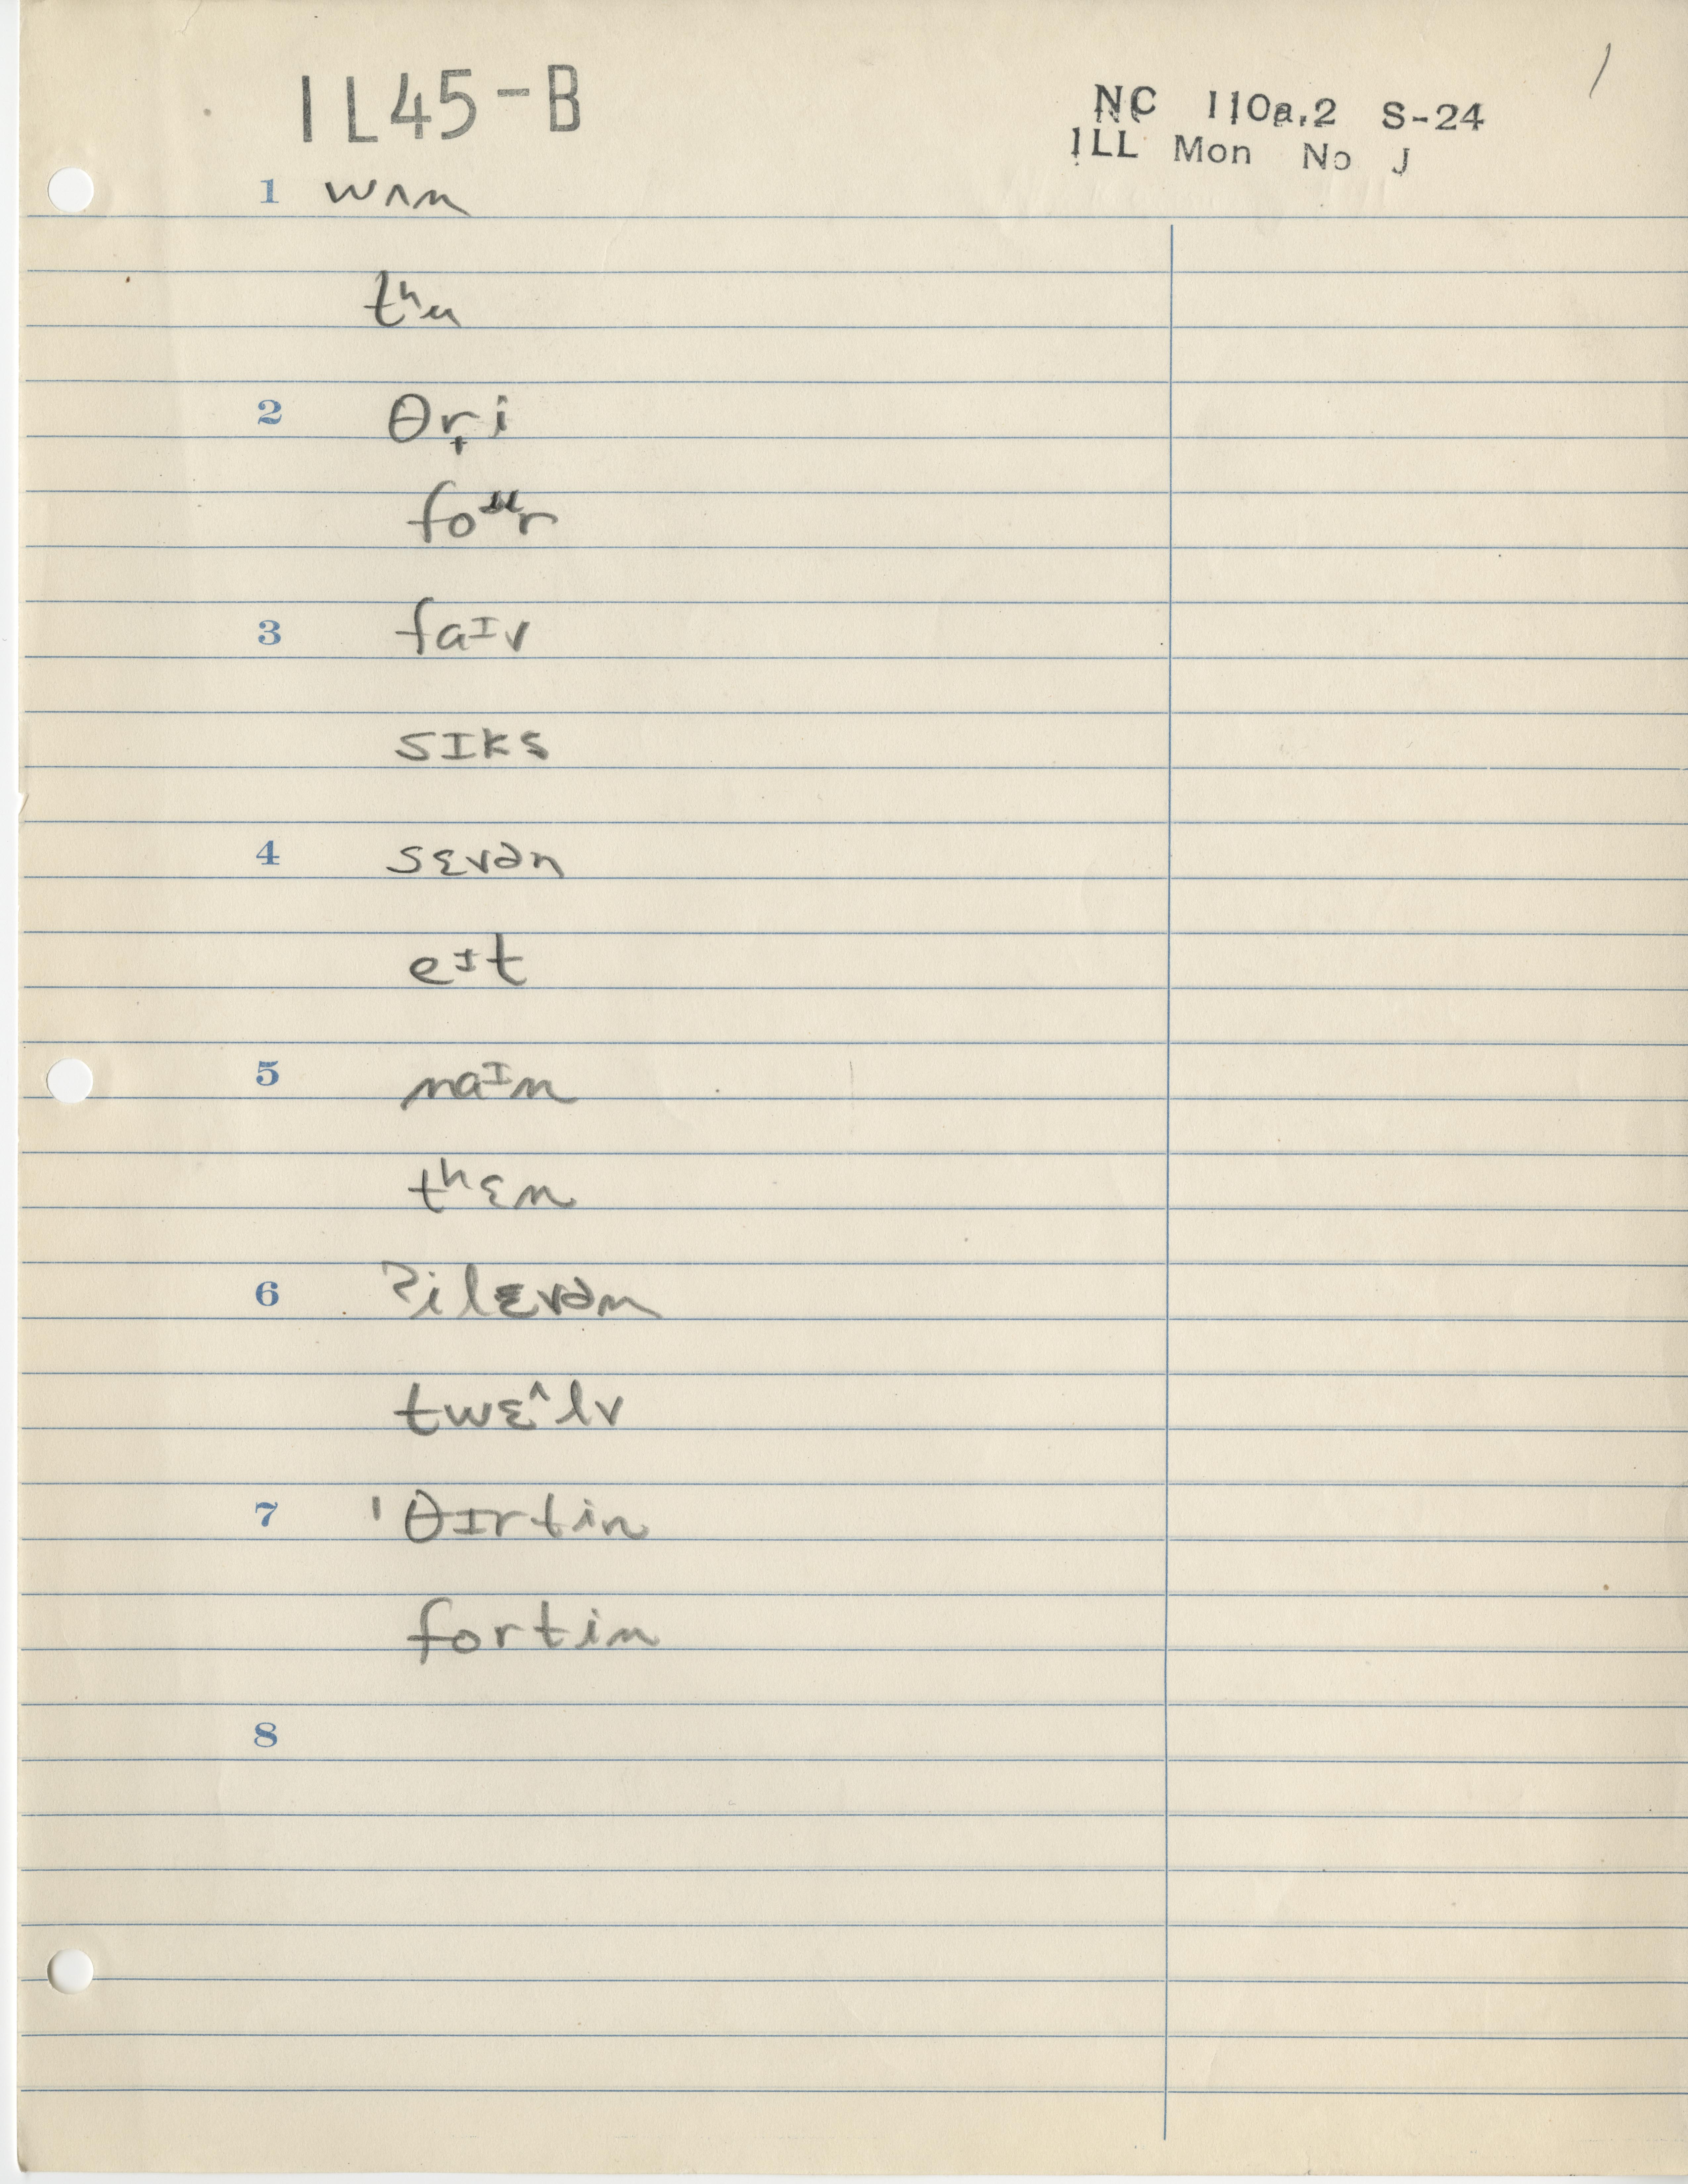 IL45-B
NC 110a.2 S-24
ILL Mon No J
1
1 wʌn
tʰu
2 θr̟i
foᵘr
3 faɪv
sɪks
4 sɛvən
eɪt
5 naɪn
tʰɛn
6 ʔilɛvən
twɛ^lv
7 ˈθɪrtin
fortin
8